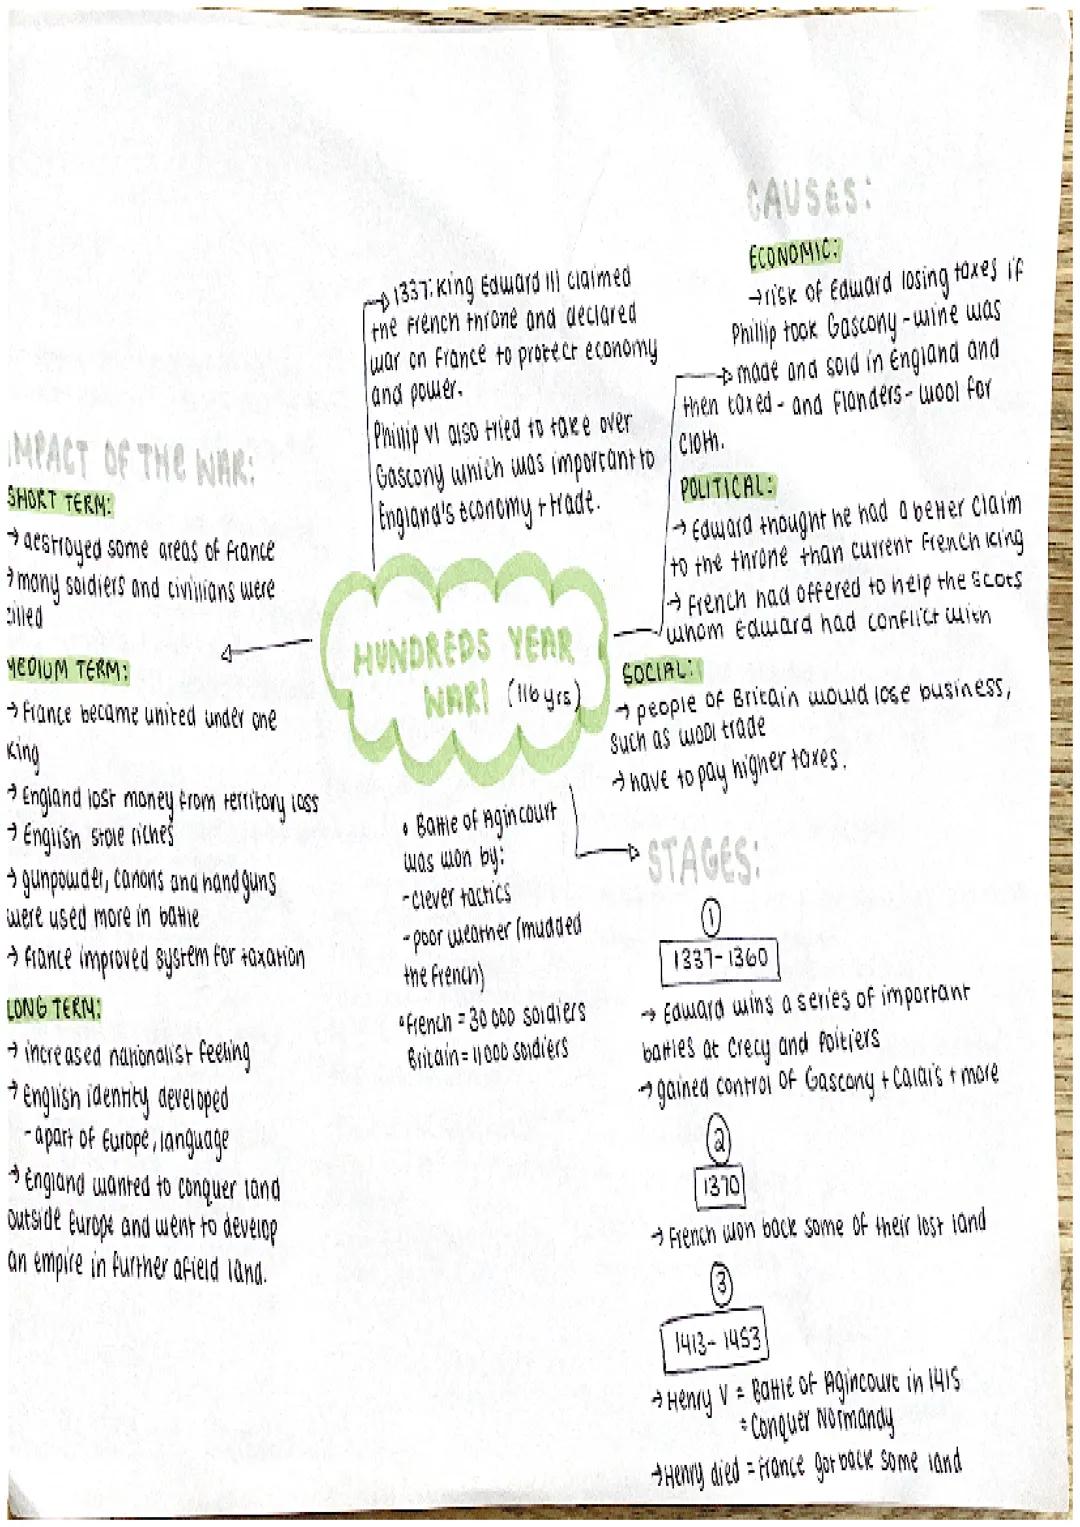 HUNDREDS YEAR
WAR! (116 yrs)
→ 1337: King Edward III claimed
the French throne and declared
war on France to protect economy
and power.
Phillip VI also tried to take over
Gascony which was important to
England's economy + trade.
CAUSES:
ECONOMIC:
→ risk of Edward losing taxes if
Phillip took Gascony - wine was
made and sold in England and
then taxed - and Flanders - wool for
cloth.
POLITICAL:
→ Edward thought he had a better claim
to the throne than current French king
→ French had offered to help the Scots
whom Edward had conflict with
SOCIAL:
→ people of Britain would lose business,
such as wool trade
→ have to pay higher taxes.
STAGES:
1
1337-1360
→ Edward wins a series of important
battles at Crecy and Poitiers
→ gained control of Gascony + Calais + more
2
1370
→ French won back some of their lost land
3
1413-1453
→ Henry V = Battle of Agincourt in 1415
= Conquer Normandy
→ Henry died = France got back some land
• Battle of Agincourt
was won by:
- clever tactics
- poor weather (mudded
the French)
• French = 30 000 soldiers
Britain = 11 000 soldiers
IMPACT OF THE WAR:
SHORT TERM:
→ destroyed some areas of France
→ many soldiers and civilians were
killed
MEDIUM TERM:
→ France became united under one
King
→ England lost money from territory loss
→ English stole riches
→ gunpowder, canons and handguns
were used more in battle
→ France improved system for taxation
LONG TERM:
→ increased nationalist feeling
→ English identity developed
- apart of Europe, language
→ England wanted to conquer land
outside Europe and went to develop
an empire in further afield land.